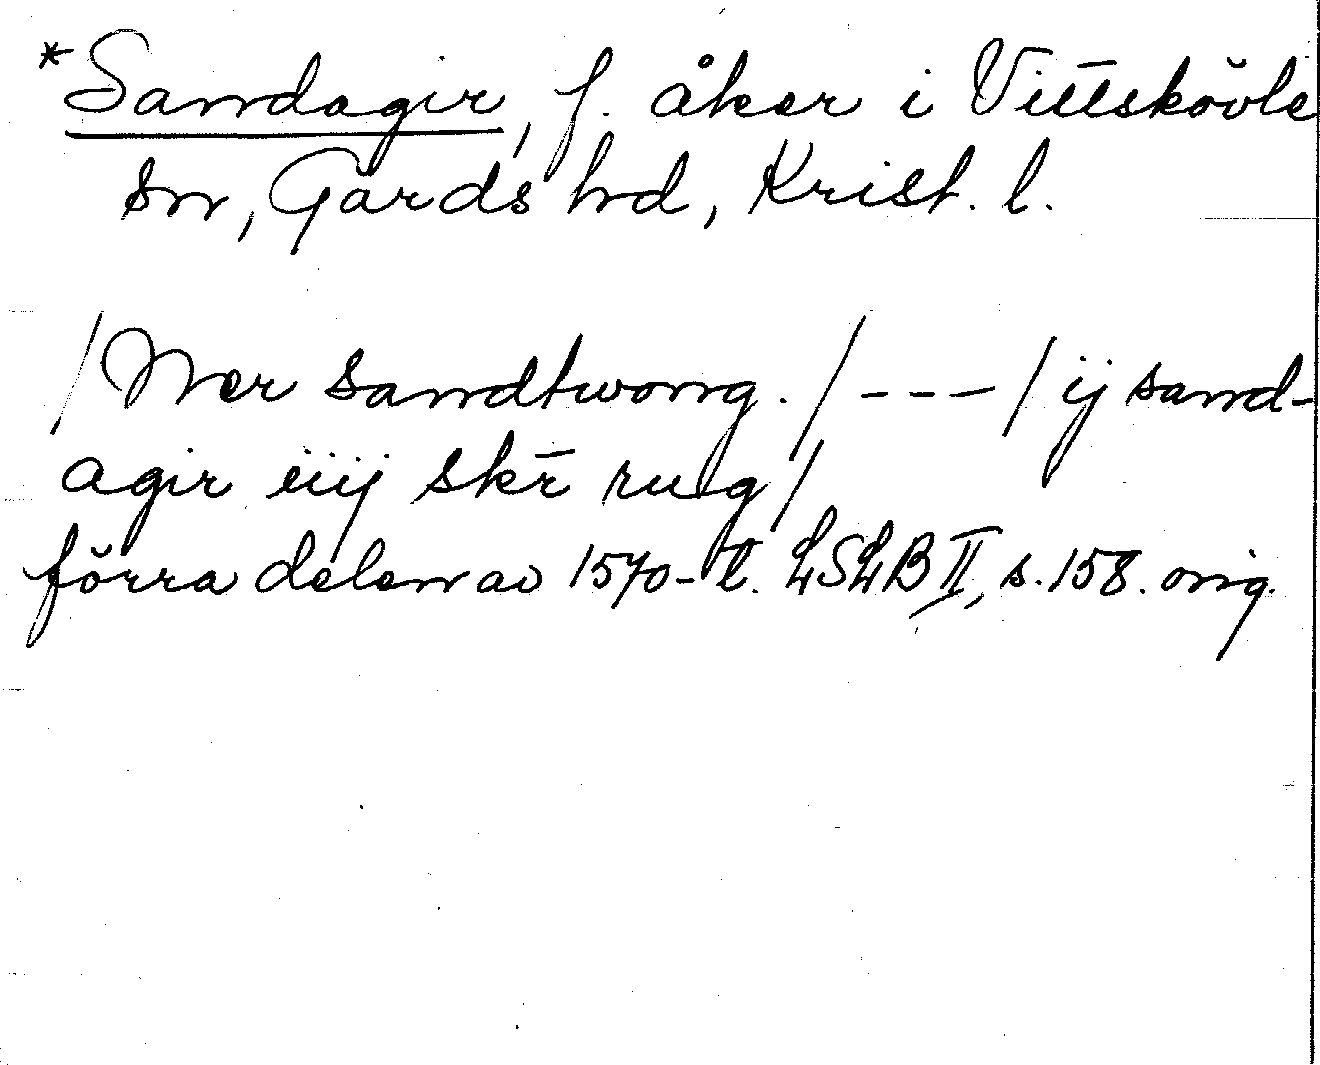 *Sandagir, f. åker i Vittskövle
sn, Gärds hd, Krist. l.
/Wer sandtwong./ --- / ij sand-
agir iiij skr̄ rug/
förra delen av 1570-t. LSLB II, s. 158. orig.